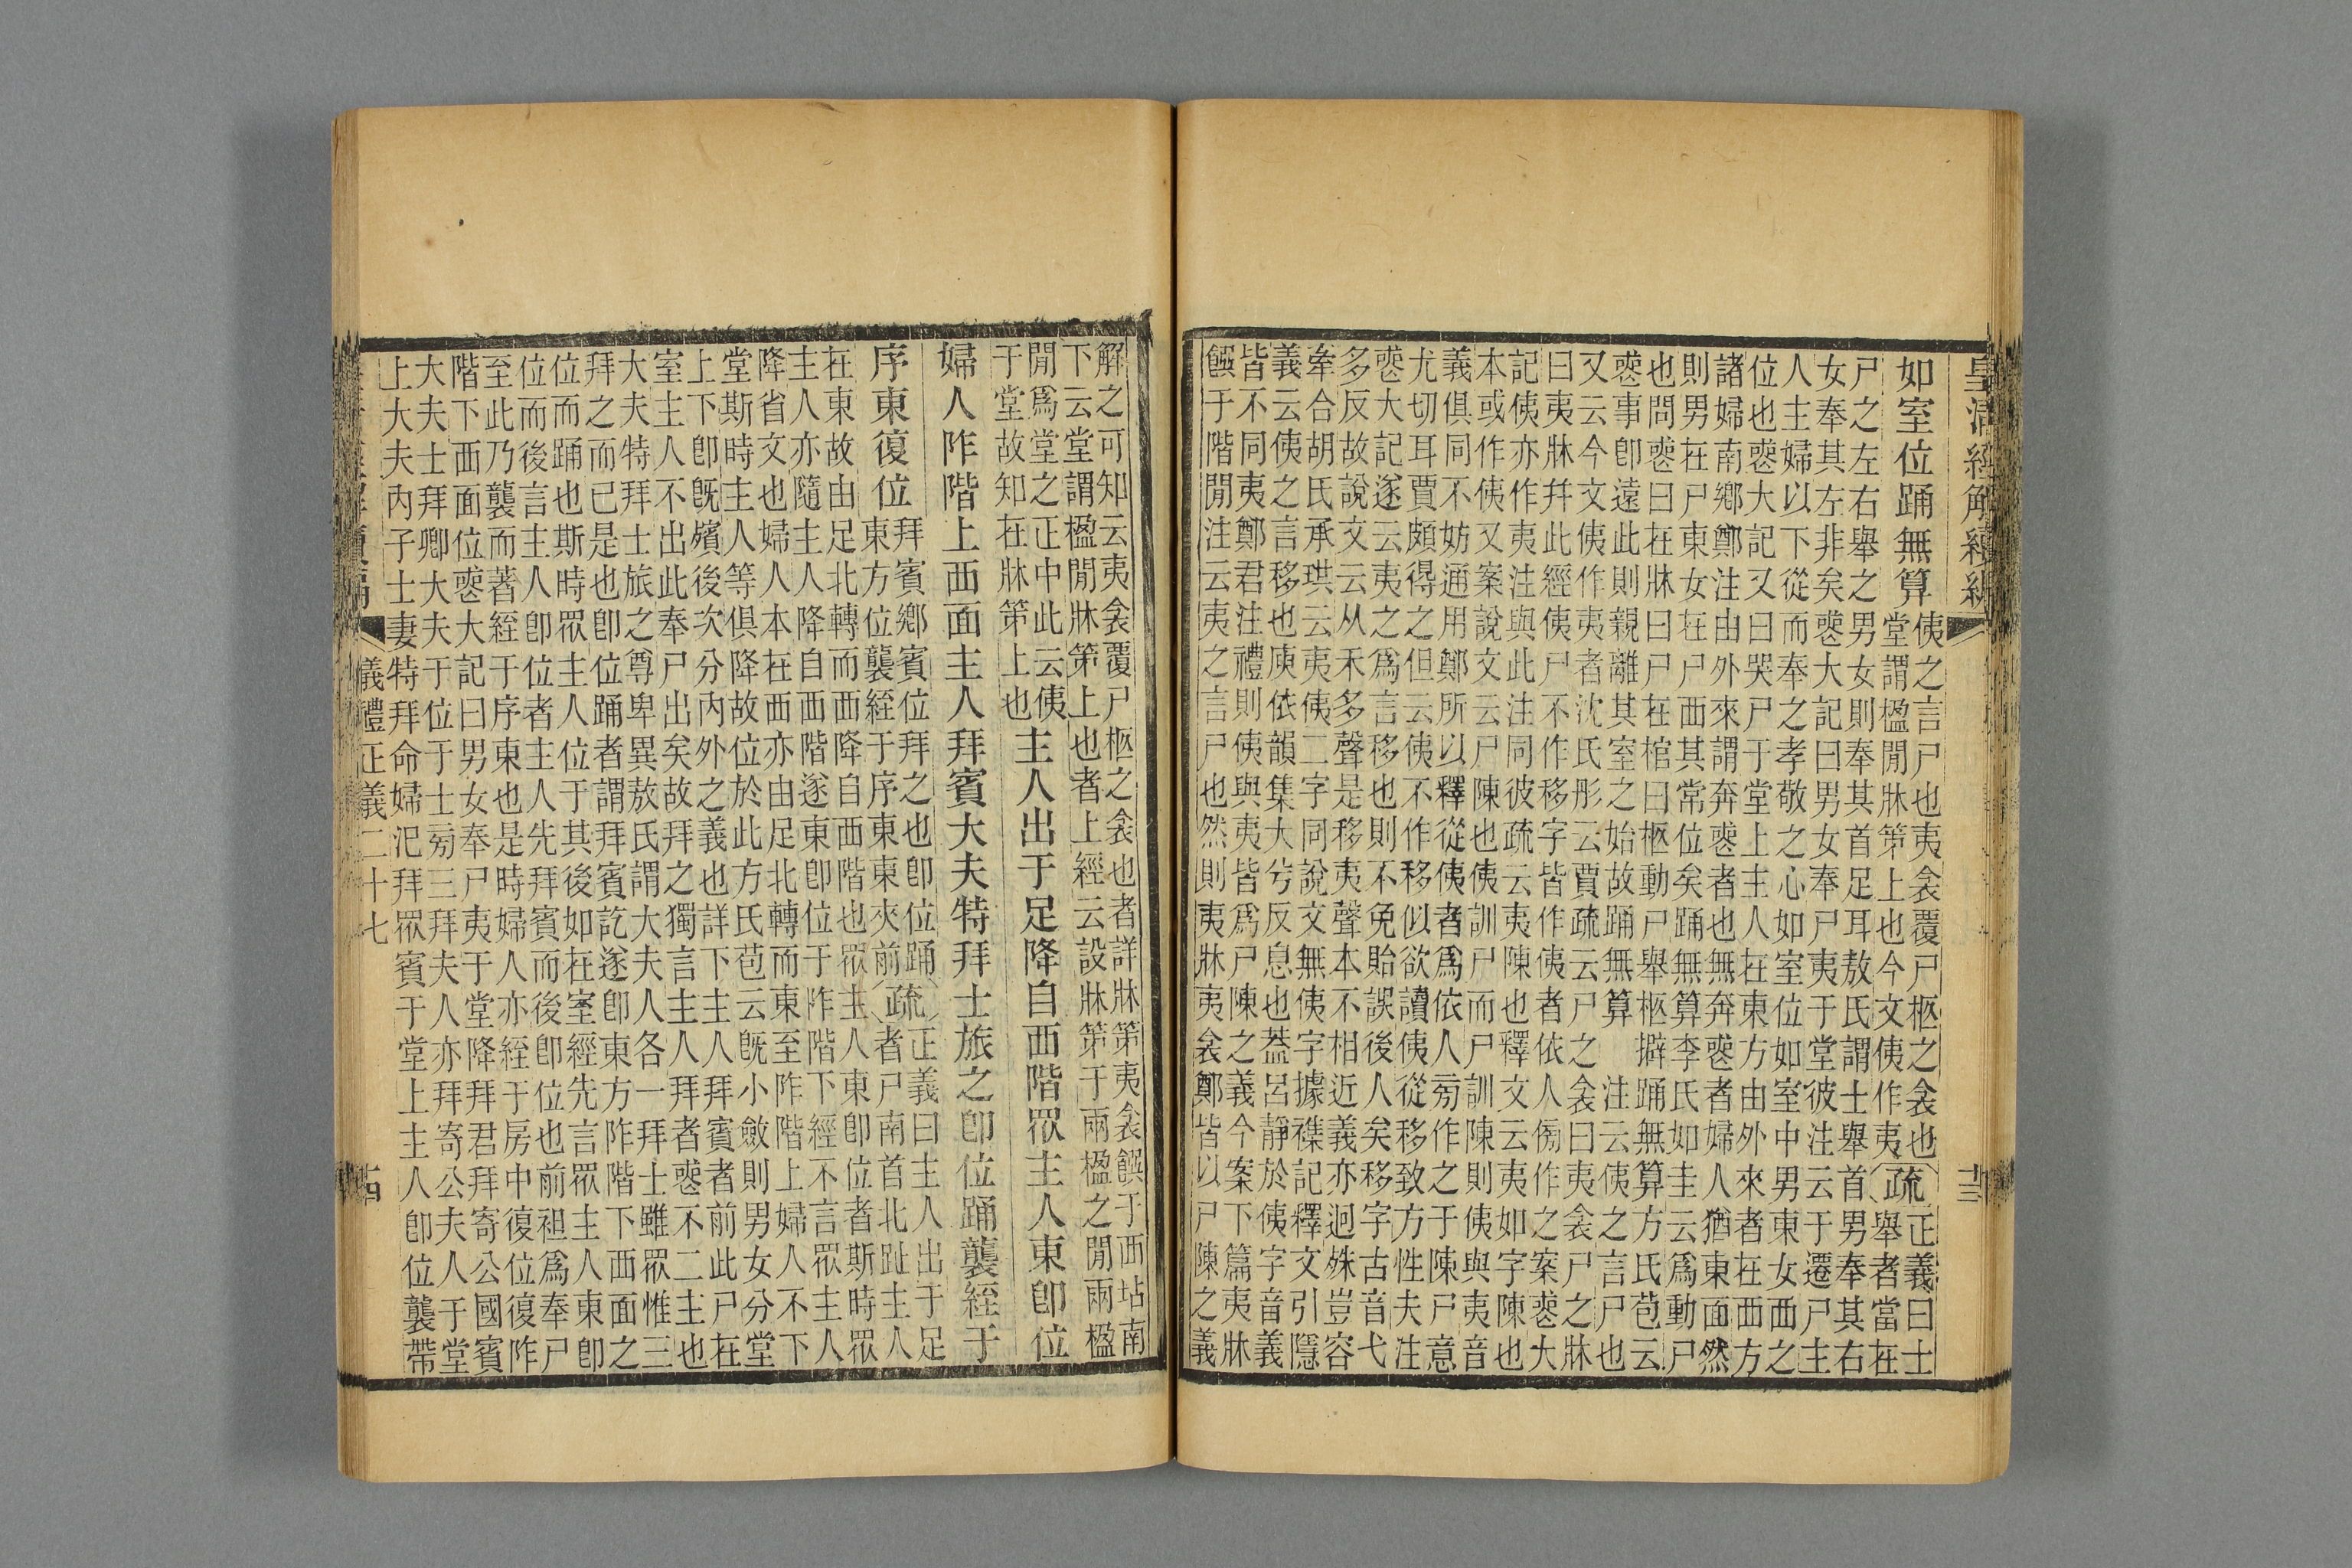 皇清經解續編
十三
如室位踊無算
侇之言尸也夷衾覆尸柩之衾也
堂謂楹閒牀第上也今文侇作夷
疏
正義曰士
舉者當在
尸之左右舉之男女則奉其首足耳敖氏謂士舉首男奉其右
女奉其左非矣喪大記曰男女奉尸夷于堂彼注云于遷尸主
人主婦以下從而奉之孝敬之心如室位如室中男東女西之
位也喪大記又曰哭尸于堂上主人在東方由外來者在西方
諸婦南鄉鄭注由外來謂奔喪者也無奔喪者婦人猶東面然
則男在尸東女在尸西其常位矣踊無算李氏如圭云爲動尸
也問喪曰在牀曰尸在棺曰柩動尸舉柩擗踊無算方氏苞云
喪事卽遠此則親離其室之始故踊無算 注云侇之言尸也
又云今文侇作夷者沈氏彤云賈疏云尸之衾曰夷衾尸之牀
曰夷牀幷此經侇尸不作移字皆作侇者依人傍作之案喪大
記侇亦作夷注與此注同彼疏云夷陳也釋文云夷如字陳也
本或作侇又案說文云尸陳也侇訓尸而尸訓陳則侇與夷音
義俱同不妨通用鄭所以釋從侇者爲依人旁作之于陳尸意
尤切耳賈頗得之但云侇不作移似欲讀侇從移致方性夫注
喪大記遂云夷之爲言移也則不免貽誤後人矣移字古音弋
多反故說文云从禾多聲是移夷聲本不相近義亦迥殊豈容
牽合胡氏承珙云夷侇二字同說文無侇字據襍記釋文引隱
義云侇之言移也庾依韻集大兮反息也葢呂靜於侇字音義
皆不同夷鄭君注禮則侇與夷皆爲尸陳之義今案下篇夷牀
饌于階閒注云夷之言尸也然則夷牀夷衾鄭皆以尸陳之義
解之可知云夷衾覆尸柩之衾也者詳牀第夷衾饌于西坫南
下云堂謂楹閒牀第上也者上經云設牀第于兩楹之閒兩楹
閒爲堂之正中此云侇
于堂故知在牀第上也
主人出于足降自西階眾主人東卽位
婦人阼階上西面主人拜賓大夫特拜士旅之卽位踊襲絰于
序東復位
拜賓鄉賓位拜之也卽位踊
東方位襲絰于序東東夾前
疏
正義曰主人出于足
者尸南首北趾主人
在東故由足北轉而西降自西階也眾主人東卽位者斯時眾
主人亦隨主人降自西階遂東卽位于阼階下經不言眾主人
降省文也婦人本在西亦由足北轉而東至阼階上婦人不下
堂斯時主人等俱降故位於此方氏苞云旣小斂則男女分堂
上下卽旣殯後次分內外之義也詳下主人拜賓者前此尸在
室主人不出此奉尸出矣故拜之獨言主人拜者喪不二主也
大夫特拜士旅之尊卑異敖氏謂大夫人各一拜士雖眾惟三
拜之而已是也卽位踊者謂拜賓訖遂卽東方阼階下西面之
位而踊也斯時眾主人位于其後如在室經先言眾主人東卽
位而後言主人卽位者主人先拜賓而後卽位也前袒爲奉尸
至此乃襲而著絰于序東也是時婦人亦絰于房中復位復阼
階下西面位喪大記曰男女奉尸夷于堂降拜君拜寄公國賓
大夫士拜卿大夫于位于士旁三拜夫人亦拜寄公夫人于堂
上大夫內子士妻特拜命婦汜拜眾賓于堂上主人卽位襲帶
儀禮正義二十七
十四